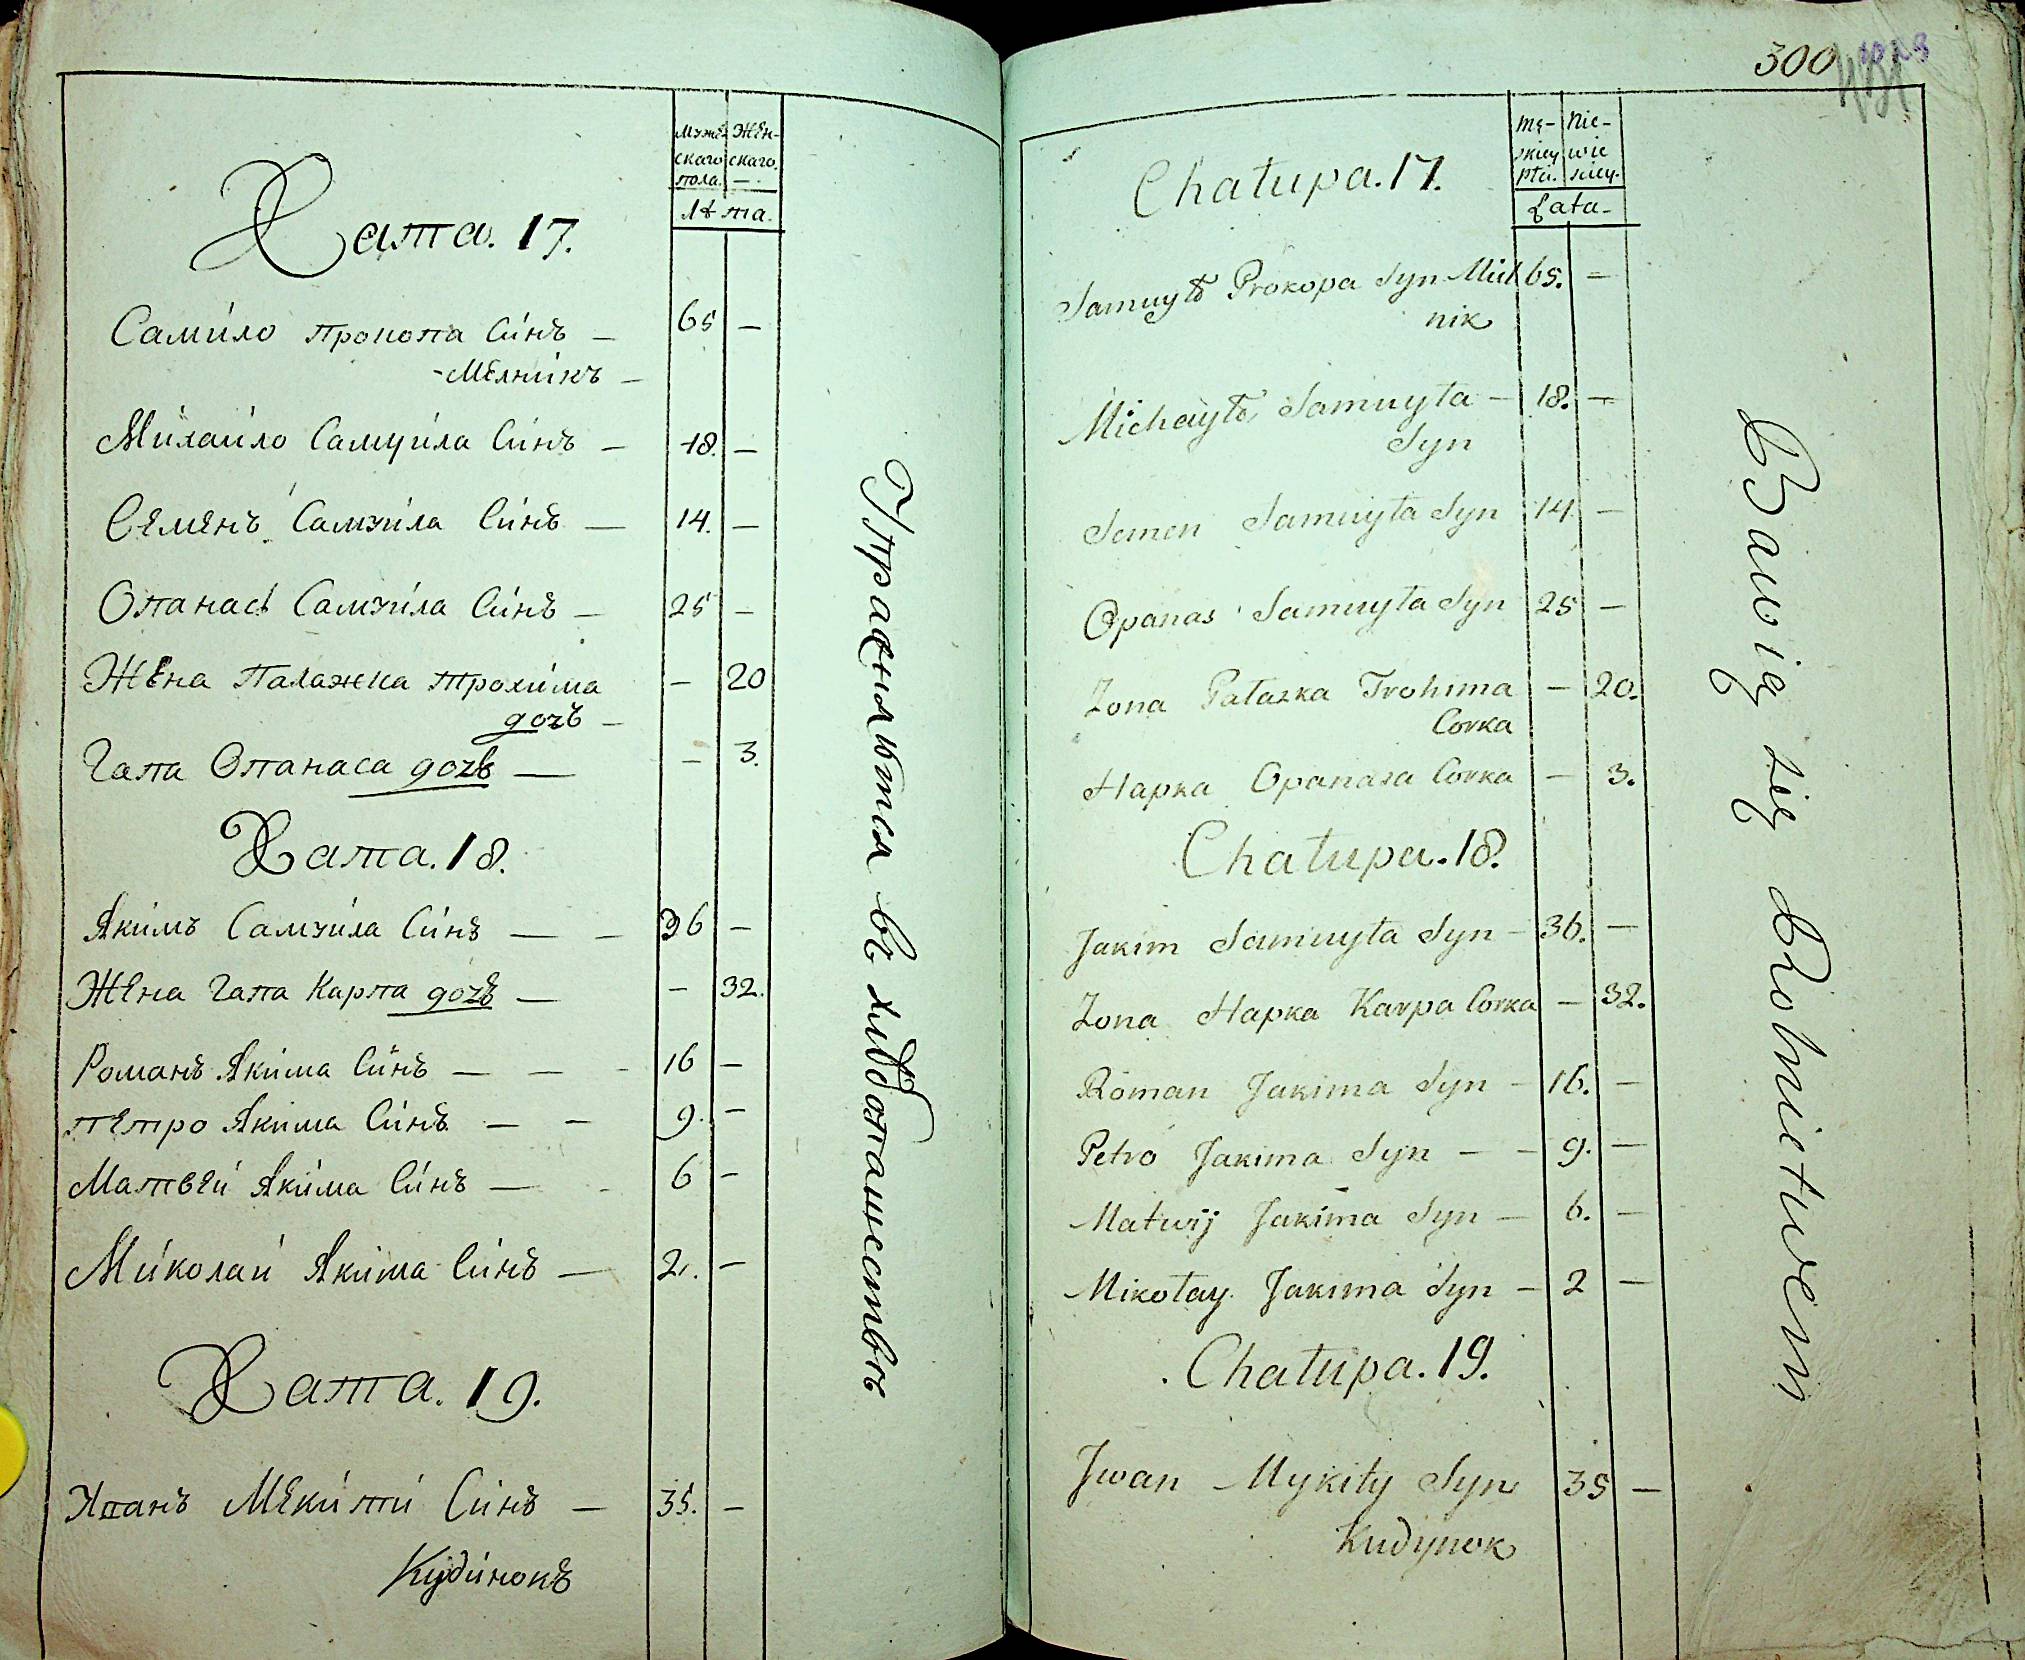 Муже- Жен-
скаго скаго
пола. —
Лѣта.
Хата. 17.
Самі́ло прокопа Сі́нъ — 65 —
- Мелні́къ —
Міхаі́ло Самуі́ла Сі́нъ — 18. —
Семенъ Самуі́ла Сі́нъ — 14. —
Опанасъ Самуі́ла Сі́нъ — 25 —
Жена Палажка Трохі́ма — 20
дочъ —
Гапа Опанаса дочъ — — 3.
Хата. 18.
Якимъ Самуі́ла Сі́нъ — — 36 —
Жена Гапа Карпа дочъ — — 32.
Романъ Якіма Сі́нъ — — - 16 —
петро Якіма Сі́нъ — — 9. —
Матвеі́ Які́ма Сі́нъ — - 6 —
Мі́колаі́ Якіма Сі́нъ — 2. —
Хата. 19.
Иванъ Мекі́ті́ Сі́нъ — 35. —
Куді́нокъ
Упражняются въ хлѣбопашествѣ
300
Mę- Nie-
skiey wie
płci. sciey.
Łata-
Chałupa. 17.
Samuyło Prokopa Syn Miel 65. —
nik
Michayło Samuyła — 18. —
Syn
Semen Samuyła Syn 14. —
Opanas Samuyła Syn 25 —
Zona Pałaszka Trohima — 20.
Corka
Hapka Opanasa Corka — 3.
Chałupa. 18.
Jakim Samuyła Syn — 36. —
Zona Hapka Karpa Corka — 32.
Roman Jakima Syn — 16. —
Petro Jakima Syn — — 9. —
Matwij Jakima Syn — 6. —
Mikołay Jakima Syn — 2 —
Chałupa. 19.
Jwan Mykity Syn 35 —
Kudynok
Bawią się Rolnictwem